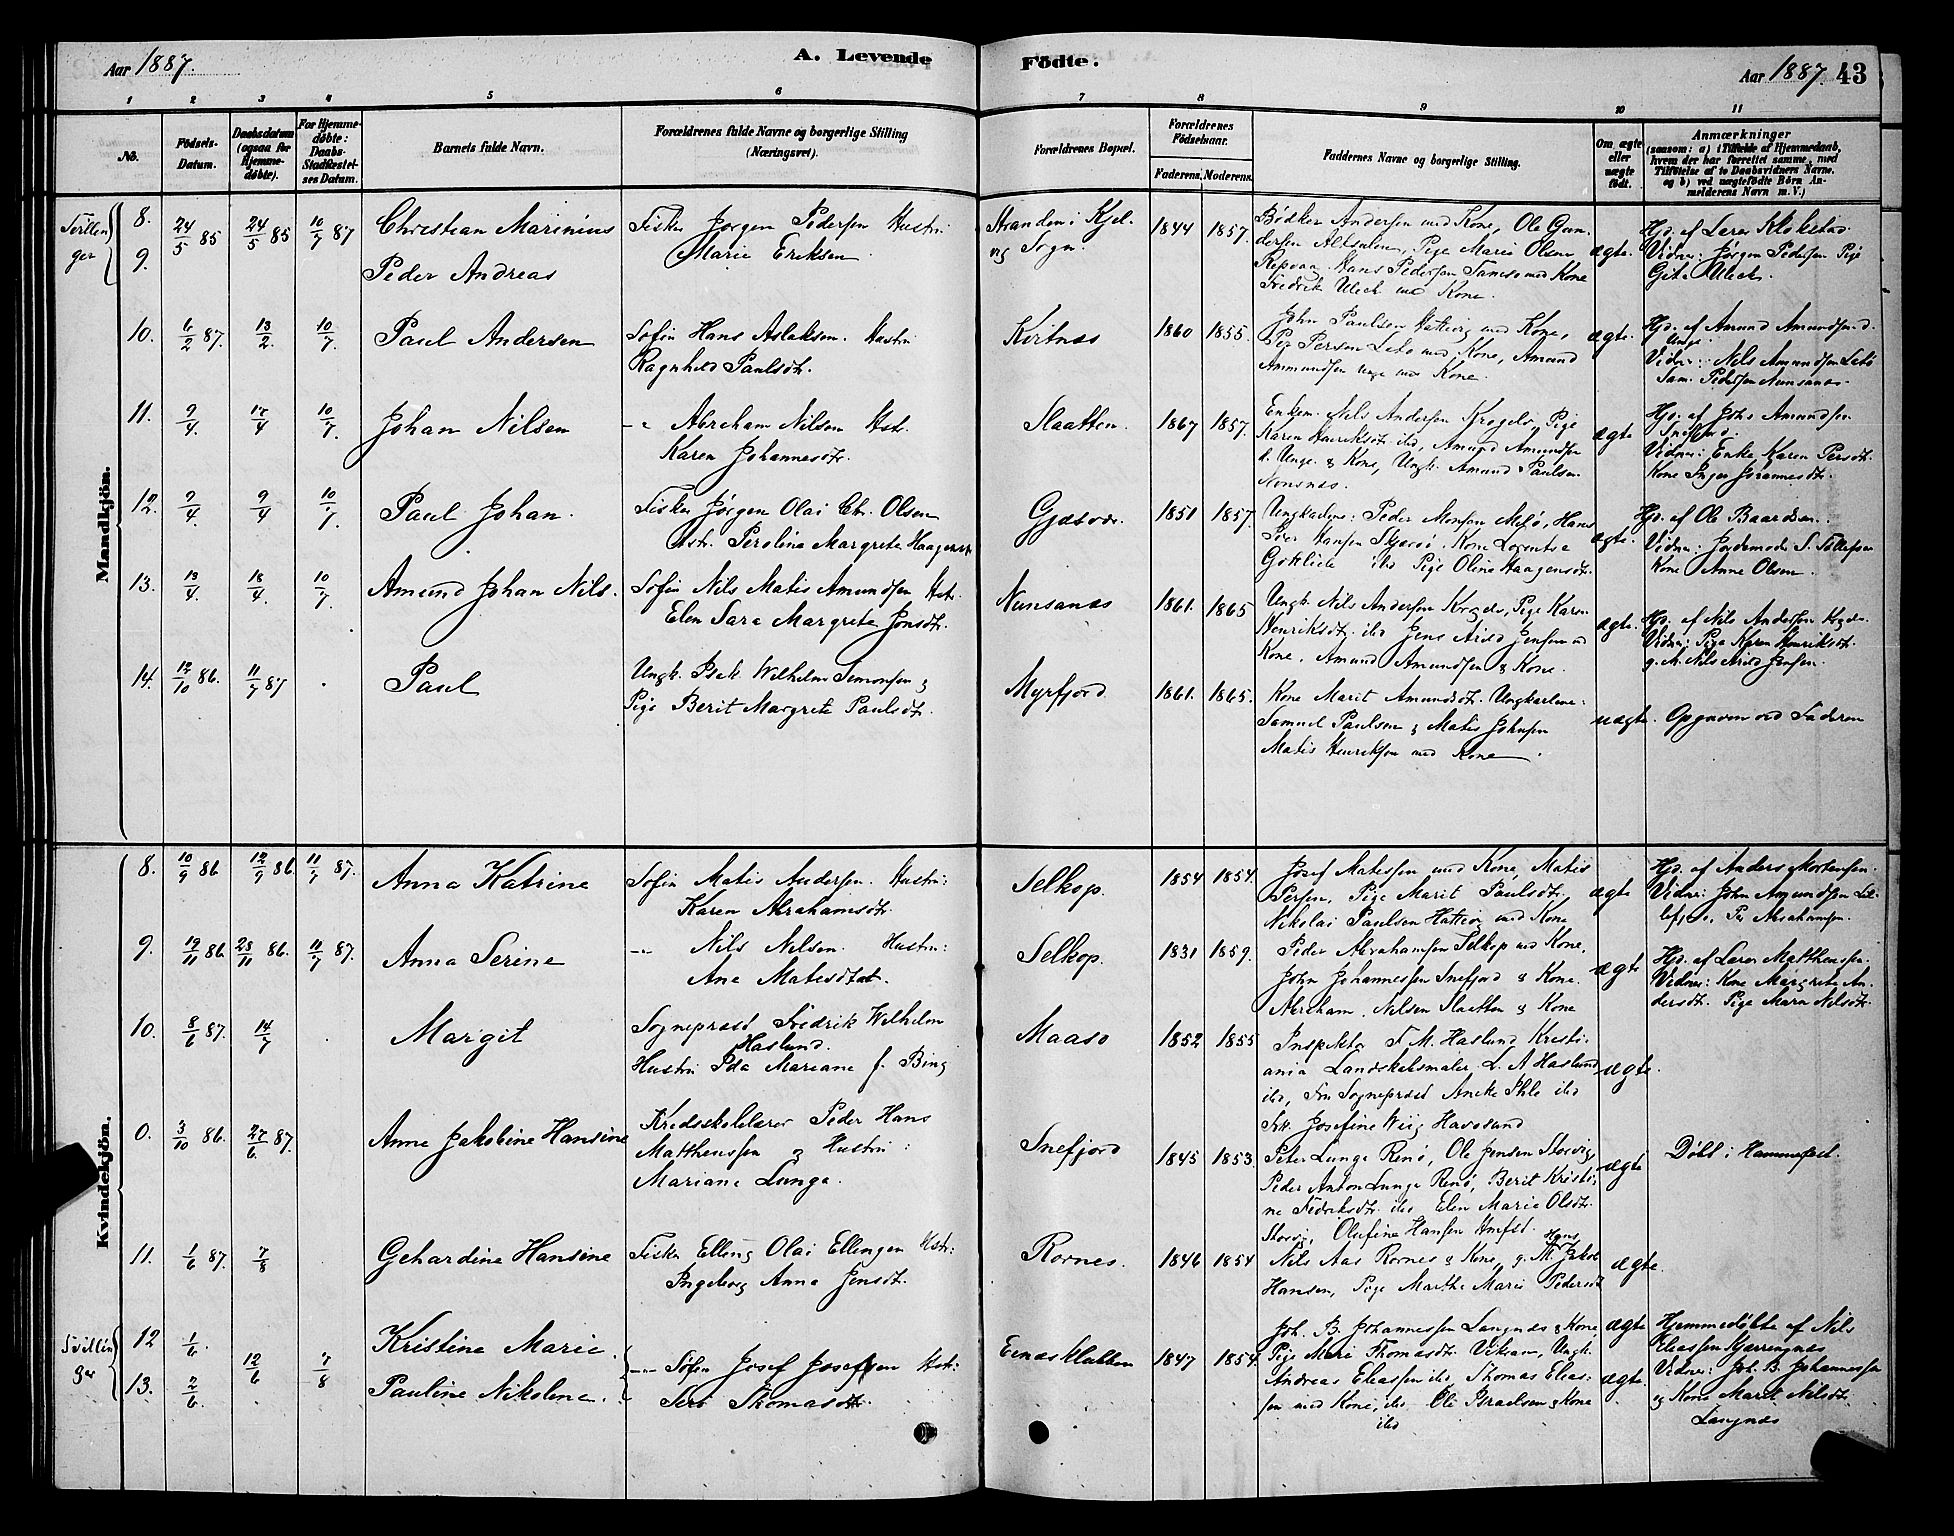 Aar 1887.
A. Levende
Födte.
Aar 1887. 43
1 2 3 4 5 6 7 8 9 10 11
No.
Födsels-
Datum.
Daabsdatum
(ogsaa for
Hjemme-
døbte).
For Hjemme-
døbte:
Daabs-
Stadfæstel-
ses Datum.
Barnets fulde Navn.
Forældrenes fulde Navne og borgerlige Stilling
(Næringsvei).
Forældrenes Bopæl.
Forældrenes
Födselsaar.
Faderens. Moderens.
Faddernes Navne og borgerlige Stilling.
Om ægte
eller
uægte
födt.
Anmærkninger
(saasom: a) i Tilfælde af Hjemmedaab,
hvem der har forrettet samme, med
Tilföielse af to Daabsvidners Navne,
og b) ved uægtefödte Börn An-
melderens Navn m. V.)
Mandkjön.
8. 24/5 85 24/5 85 10/7 87 Christian Marinius
9. Peder Andreas
Fisker Jørgen Pedersen Hustru
Marie Eriksen.
Stranden i Kjel-
vig Sogn.
1844 1857.
Bødker Andersen med Kone, Ole Gun-
dersen Altsulen, Pige Marie Olsen
Repvaag. Hans Pedersen Tamsø med Kone
Fredrik Uleck med Kone.
ægte.
Hjd. af Lærer Klokstad.
Vidner: Jørgen Pedersen Pige
Gite Uleck.
10. 6/2 87. 13/2. 10/7. Paul Andersen
Sofin Hans Aslaksen. Hustru
Ragnhild Paulsdtr.
Kirtnæs
1860 1855.
John Paulsen Hattevig med Kone,
Per Persen Lebo med Kone, Amund
Ammundsen unge med Kone.
ægte.
Hjd. af Amund Amundsen d.
Unge.
Vidner: Nils Amundsen Lebo
Sam. Pedersen Nunsanæs.
11. 9/4. 17/4 10/7. Johan Nilsen
-"- Abraham Nilsen Hstr.
Karen Johannesdtr.
Slaatten.
1867 1857.
Enkem. Nils Andersen Krogels, Pige
Karen Henriksdtr. ibd, Amund Amundsen
d. Unge & Kone, Ungk. Amund Paulsen
Nonsnæs.
ægte
Hjd. af Johs Amundsen
Snefjord.
Vidner: Enke Karen Persdtr.
Kone Inger Johannesdtr.
12. 7/4. 9/4 10/7. Paul Johan.
Fisker Jørgen Olai Chr. Olsen
Hstr. Peroline Margrete Haagensdtr
Gjæsvær.
1851 1857.
Ungkarlene: Peder Monsen Mefjø, Hans
Peder Hansen Skjærø, Kone Lorentse
ibd Pige Oline Haagensdtr.
ægte.
Hjd. af Ole Baardsen.
Vidner: Jordemoder S. Tollefsen
Kone Anne Olsen.
13. 13/4. 18/4. 10/7. Amund Johan Nils.
Sofin Nils Matis Amundsen Hstr.
Elen Sara Margrete Jonsdtr.
Nunsanæs
1861. 1865
Ungk. Nils Andersen Krogels, Pige Karen
Henriksdtr. ibd Jens Arild Jensen md
Kone. Amund Amundsen & Kone.
ægte.
Hjd. af Nils Andersen Krogels.
Vidner: Pige Karen Henriksdtr.
g. M. Nils Arild Jensen.
14. 12/10 86. 11/7 87 . Paul
Ungk. Isak Wilhelm Simonsen &
Pige Berit Margrete Paulsdtr.
Myrfjord
1861. 1865.
Kone Marit Amundsdtr. Ungkarlene:
Samuel Paulsen & Matis Johnsen
Matis Henriksen med Kone.
uægte. Opgiven ved Faderen
Kvindekjön.
8. 10/9 86 12/9 86. 11/7 87. Anna Katrine
Sofin Matis Andersen. Hustru:
Karen Abrahamsdtr.
Selkop.
1854 1854.
Josef Matissen med Kone, Matis
Persen, Pige Marit Paulsdtr.
Nikolai Paulsen Hattevig med Kone
ægte
Hjd. af Anders Mortensen.
Vidner: John Amundsen Lil-
lefjord, Per Abrahamsen.
9. 19/11 86 28/11 86. 11/7 87. Anna Serine
-"- Nils Nilsen. Hustru:
Ane Matisdtat.
Selkop.
1831 1859.
Peder Abrahamsen Selkop med Kone,
John Johannessen Snefjord & Kone.
Abraham. Nilsen Slaatten & Kone
ægte
Hjd. af Lærer Matthenssen.
Vidner: Kone Margrete An-
dersdtr. Pige Maren Nilsdtr.
10. 8/6 87. 14/7 . Margit
Sogneprest Fredrik Wilhelm
Haslund.
Hustru Ida Mariane f. Bing
Maaso
1852 1855
Inspektør F. M. Haslund Kristi-
ania Landskabsmaler L. A Haslund
ibd, Fru Sogneprest Aneke Ihle ibd
Frk. Josefine Wiig Havøsund
ægte.
0. 3/10 86. 27/6. 87. Anne Jakobine Hansine
Kredsskolelærer Peder Hans
Matthenssen og Hustru:
Mariane Lunge.
Snefjord
1845 1853.
Peter Lunge Renø, Ole Jensen Storvig,
Peder Anton Lunge Renø, Berit Kristi-
ne Fredriksdtr. ibd Elen Marie Olsdtr.
Storvig, Olufine Hansen Hmfst.
ægte
Døbt i Hammerfest.
11. 1/6 87. 7/8 . Gehardine Hansine
Fisker Elling Olai Ellingen Hstr:
Ingeborg Anna Jensdtr.
Rornes.
1846 1854
Nils Aas Rornes & Kone, g. M. Hans Jakob
Hansen, Pige Marthe Marie Pedersdtr
ægte.
Tvillin
ger
12 1/6. 12/6 7/8 Kristine Marie
13. 2/6. Pauline Nikoline.
-"- Sofin Josef Josefsen Hstr:
Siri Thomasdtr.
Einæsklubben
1847 1854.
Joh. B. Johannessen Langnæs & Kone,
Pige Mari Thomasdtr. Viksan, Ungk.
Andreas Eliassen ibd, Thomas Elias-
sen med Kone, ibd Ole Israelsen & Kone
ibd
ægte
ægte.
Hjemmedøbte af Nils
Eliassen Kjærringnæs
Vidner: Joh. B. Johannessen
og Kone Marit Nilsdtr.
Langnæs